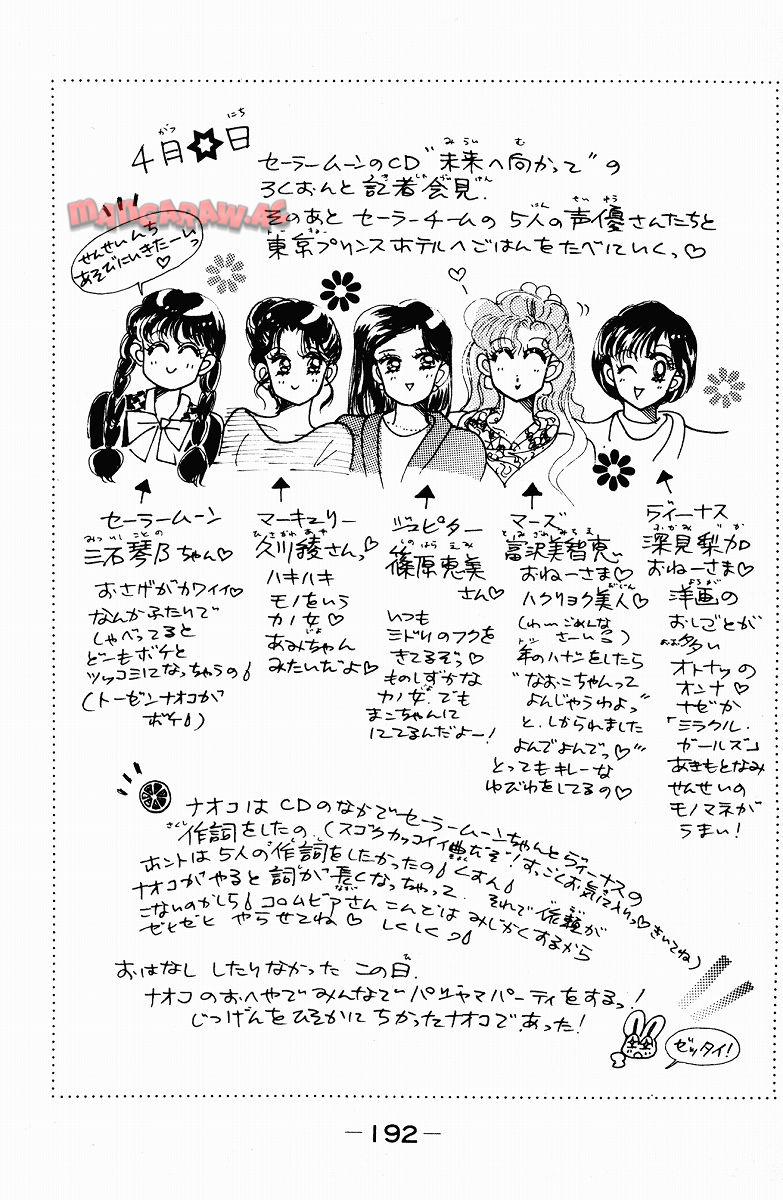 4月★日
セーラームーンのCD"未来へ向かって"の
ろくおんと記者会見.
そのあと セーラーチームの 5人の声優さんたちと
東京プリンスホテルへごはんをたべにいくっ♡
MANGARAW.AC
せんせいんち
あそびにいきたーいっ
♡
セーラームーン
三石琴乃ちゃん♡
おさげがカワイイ♡
なんかふたりで
しゃべってると
どーもボケと
ツッコミになっちゃうの
(トーゼンナオコが
ボケ)
マーキュリー
久川綾さんっ
ハキハキ
モノをいう
カノ女♡
あみちゃん
みたいだよ♡
ジュピター
篠原恵美
さん♡
いつも
ミドリのフクを
きてるぞっ♡
ものしずかな
カノ女.でも
まこちゃんに
にてるんだよー!
マーズ
富沢美智恵
おねーさま♡
ハクリョク美人♡
(わーいごめんな
さーいる)
年のハナシをしたら
"なおこちゃんって
よんじゃうわよっ"
と.しかられました
よんでよんでっ♡
とってもキレーな
ゆびわをしてるの♡
ヴィーナス
深見梨加
おねーさま♡
洋画の
おしごとが
多い
オトナッの
オンナ♡
ナゼか
「ミラクル.
ガールズ」
あきもとなみ
せんせいの
モノマネが
うまい!
ナオコはCDのなかでセーラームーンちゃんとヴィーナスの
作詞をしたの.(スゴクカッコイイ曲だぞ!すっごくお気に入りっ♡きいてね)
ホントは5人の作詞をしたかったの くすん
ナオコがやると詞が長くなっちゃって.それで依頼が
こないのかしら コロムビアさん こんどは みじかくするから
ゼヒゼヒ やらせてね♡ しくしくっ
おはなし したりなかった この日.
ナオコのおへやでみんなでパジャマパーティをするっ!
じつげんをひそかに ちかったナオコであった!
ゼッタイ!
—192—